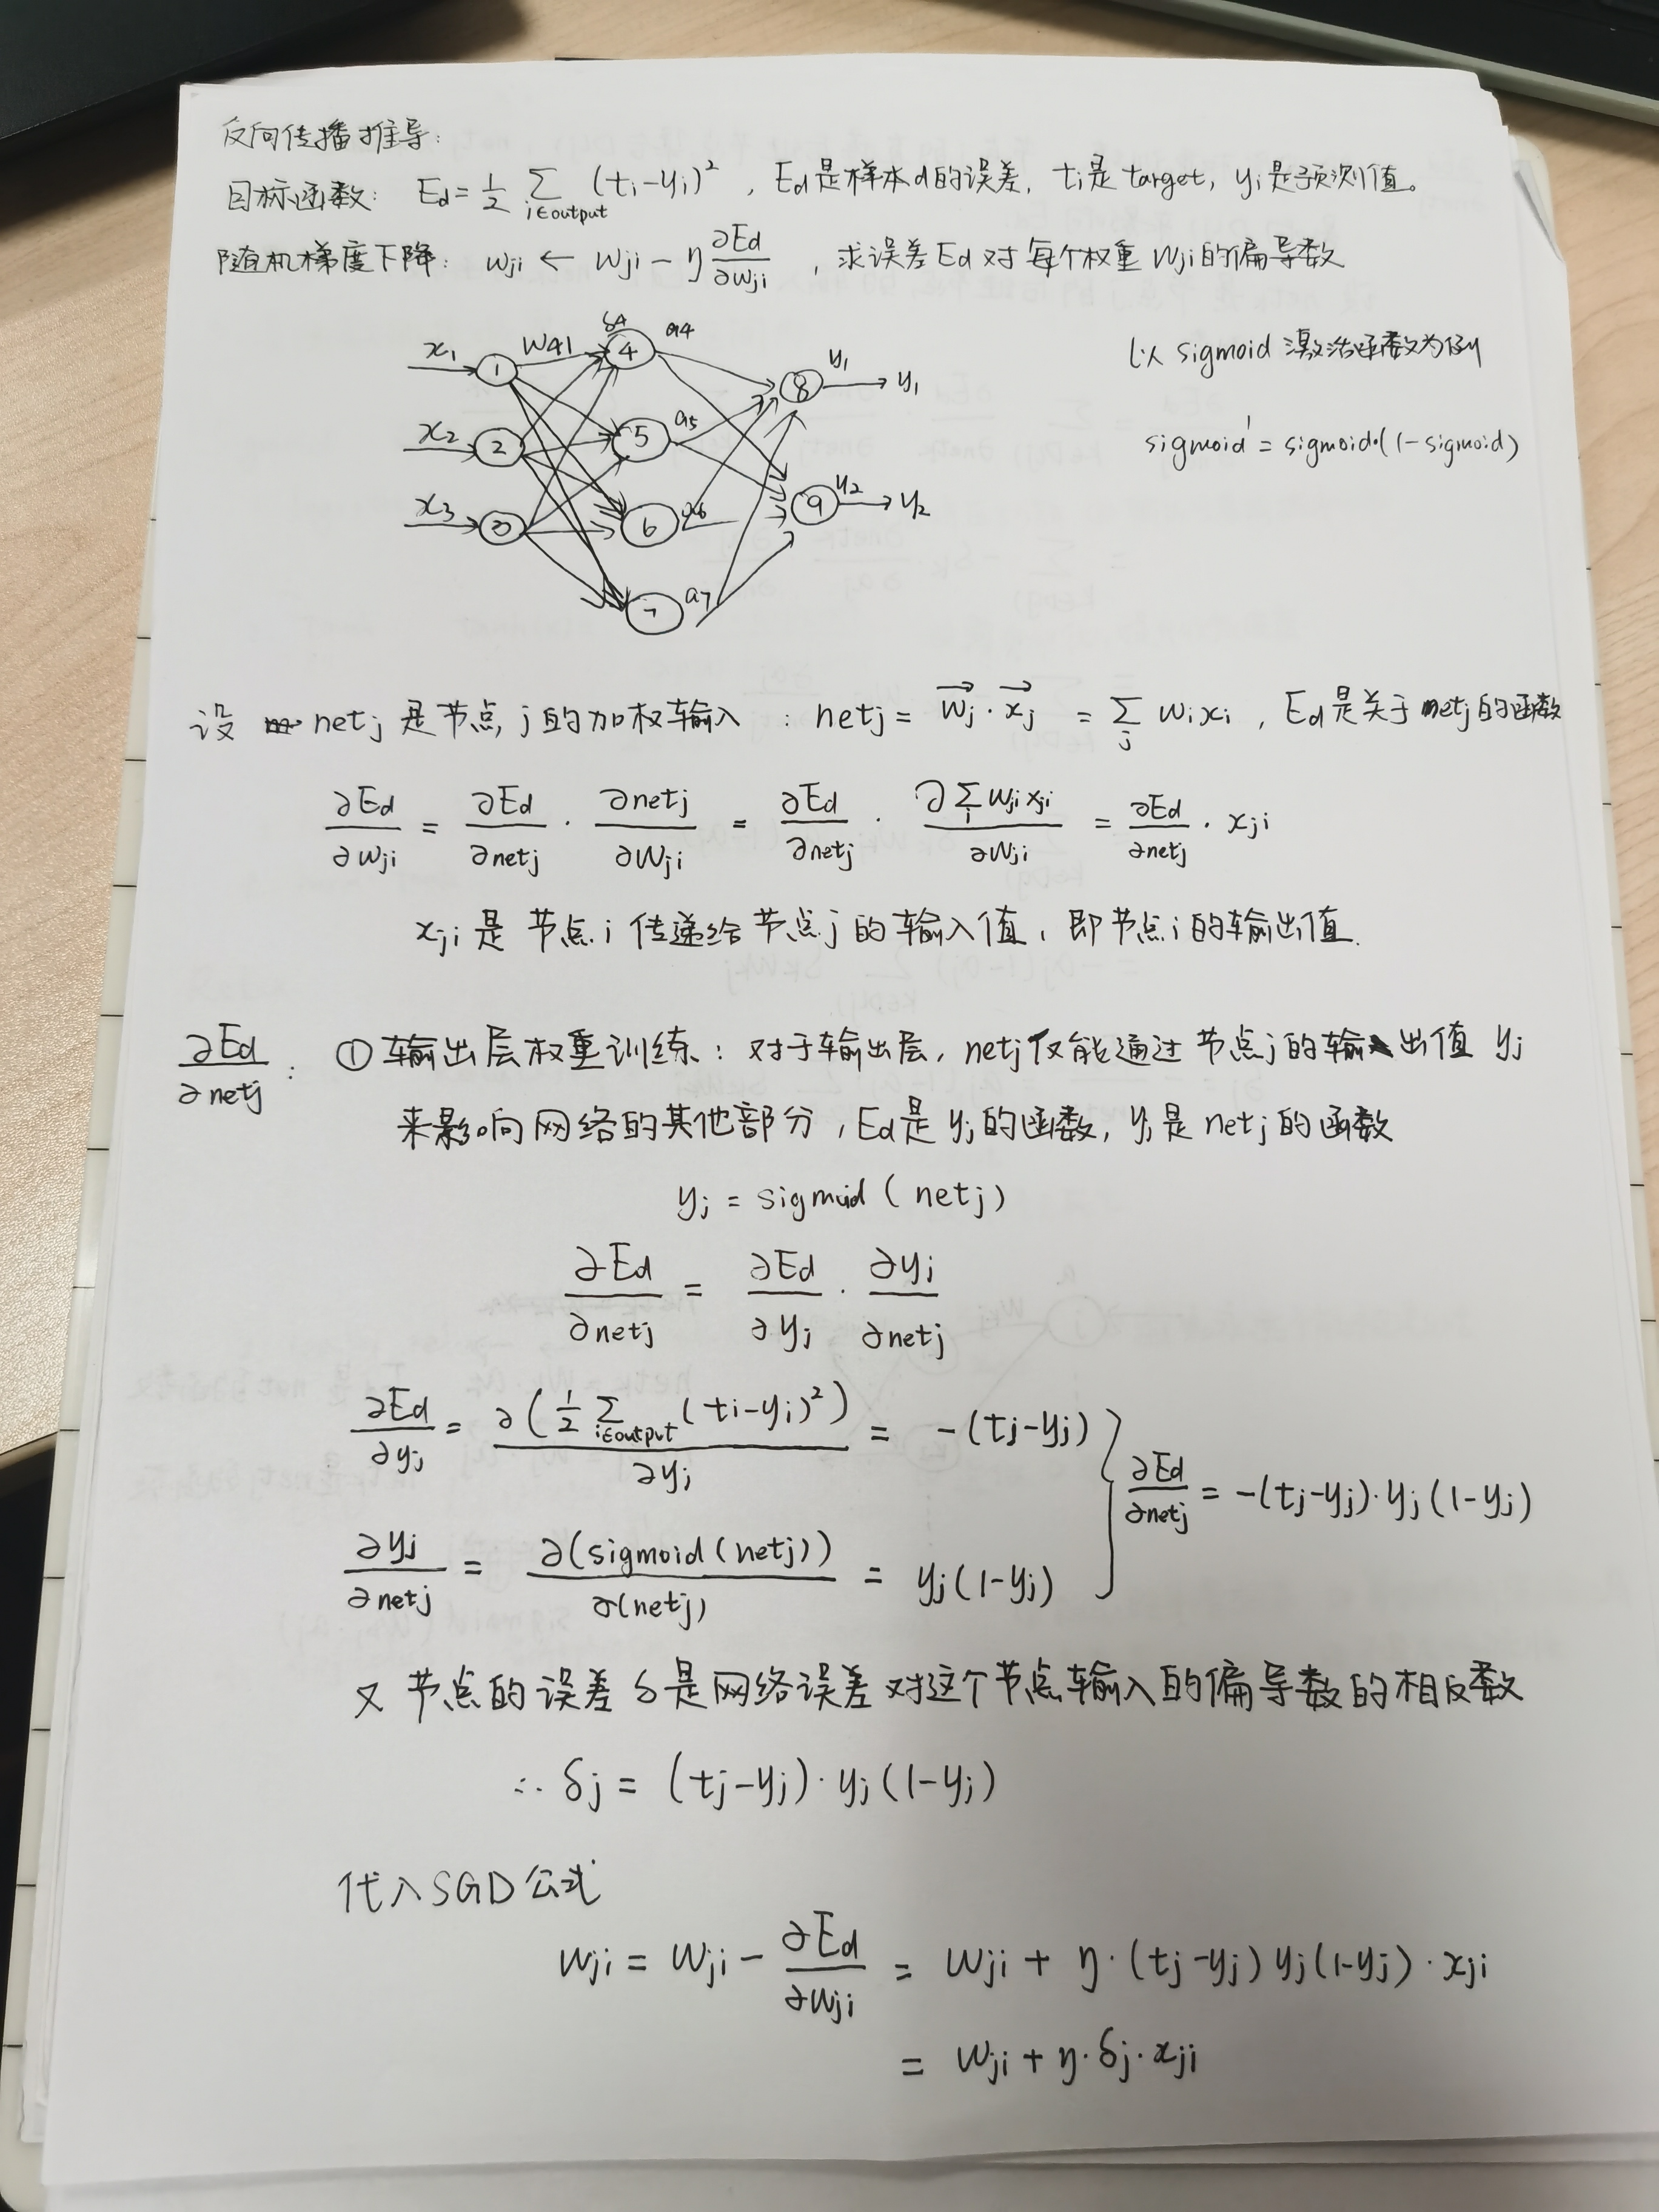 反向传播推导:
目标函数: Ed = 1/2 ∑_{i∈output} (ti-yi)², Ed是样本d的误差, ti是target, yi是预测值。
随机梯度下降: wji ← wji - η ∂Ed/∂wji , 求误差Ed对每个权重wji的偏导数
以sigmoid激活函数为例
sigmoid' = sigmoid·(1-sigmoid)
x1 1 w41 δ4 4 a4
8 y1 y1
x2 2 5 a5
9 y2 y2
x3 3 6 a6
7 a7
设 netj 是节点j的加权输入 : netj = →wj · →xj = ∑_j wixi , Ed是关于netj的函数
∂Ed/∂wji = ∂Ed/∂netj · ∂netj/∂wji = ∂Ed/∂netj · ∂∑_i wjixji/∂wji = ∂Ed/∂netj · xji
xji是节点i传递给节点j的输入值, 即节点i的输出值.
∂Ed/∂netj : ① 输出层权重训练: 对于输出层, netj仅能通过节点j的输出值 yj
来影响网络的其他部分, Ed是yj的函数, yj是netj的函数
yj = sigmoid (netj)
∂Ed/∂netj = ∂Ed/∂yj · ∂yj/∂netj
∂Ed/∂yj = ∂(1/2 ∑_{i∈output} (ti-yi)²)/∂yj = -(tj-yj)
∂yj/∂netj = ∂(sigmoid(netj))/∂(netj) = yj(1-yj)
} ∂Ed/∂netj = -(tj-yj)·yj(1-yj)
又 节点的误差δ是网络误差对这个节点输入的偏导数的相反数
∴ δj = (tj-yj)·yj(1-yj)
代入SGD公式
wji = wji - ∂Ed/∂wji = wji + η·(tj-yj)yj(1-yj)·xji
= wji + η·δj·xji